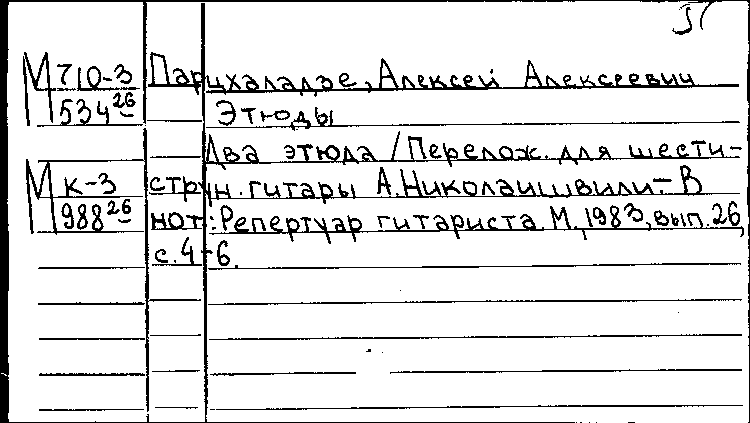 М 710-3 Парцхаладзе, Алексей Алексеевич
534 26 Этюды
Два этюда / Перелож. для шести-
М К-3 струн. гитары А. Николаишвили. - В
988 26 нот.: Репертуар гитариста. М., 1983, вып. 26,
с. 4-6.